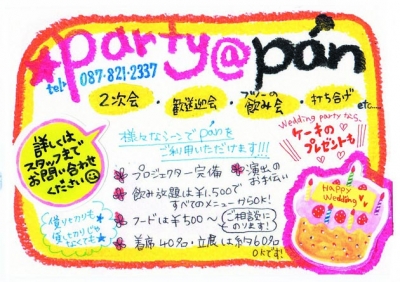 party@pán
tel・087・821・2337
2次会・歓送迎会・フツーの飲み会・打ち合げ etc....
Wedding partyなら、
ケーキの
プレゼントも
詳しくは
スタッフまで
お問い合わせ
ください
様々なシーンでpánを
ご利用いただけます!!!
プロジェクター完備
演出の
お手伝い
飲み放題は¥1,500で
すべてのメニューからOK!
フードは¥500〜
ご相談に
のります!
着席40名・立食は約60名
OKです!
借りきりも
借りきりじゃ
なくても
HAPPY
Wedding